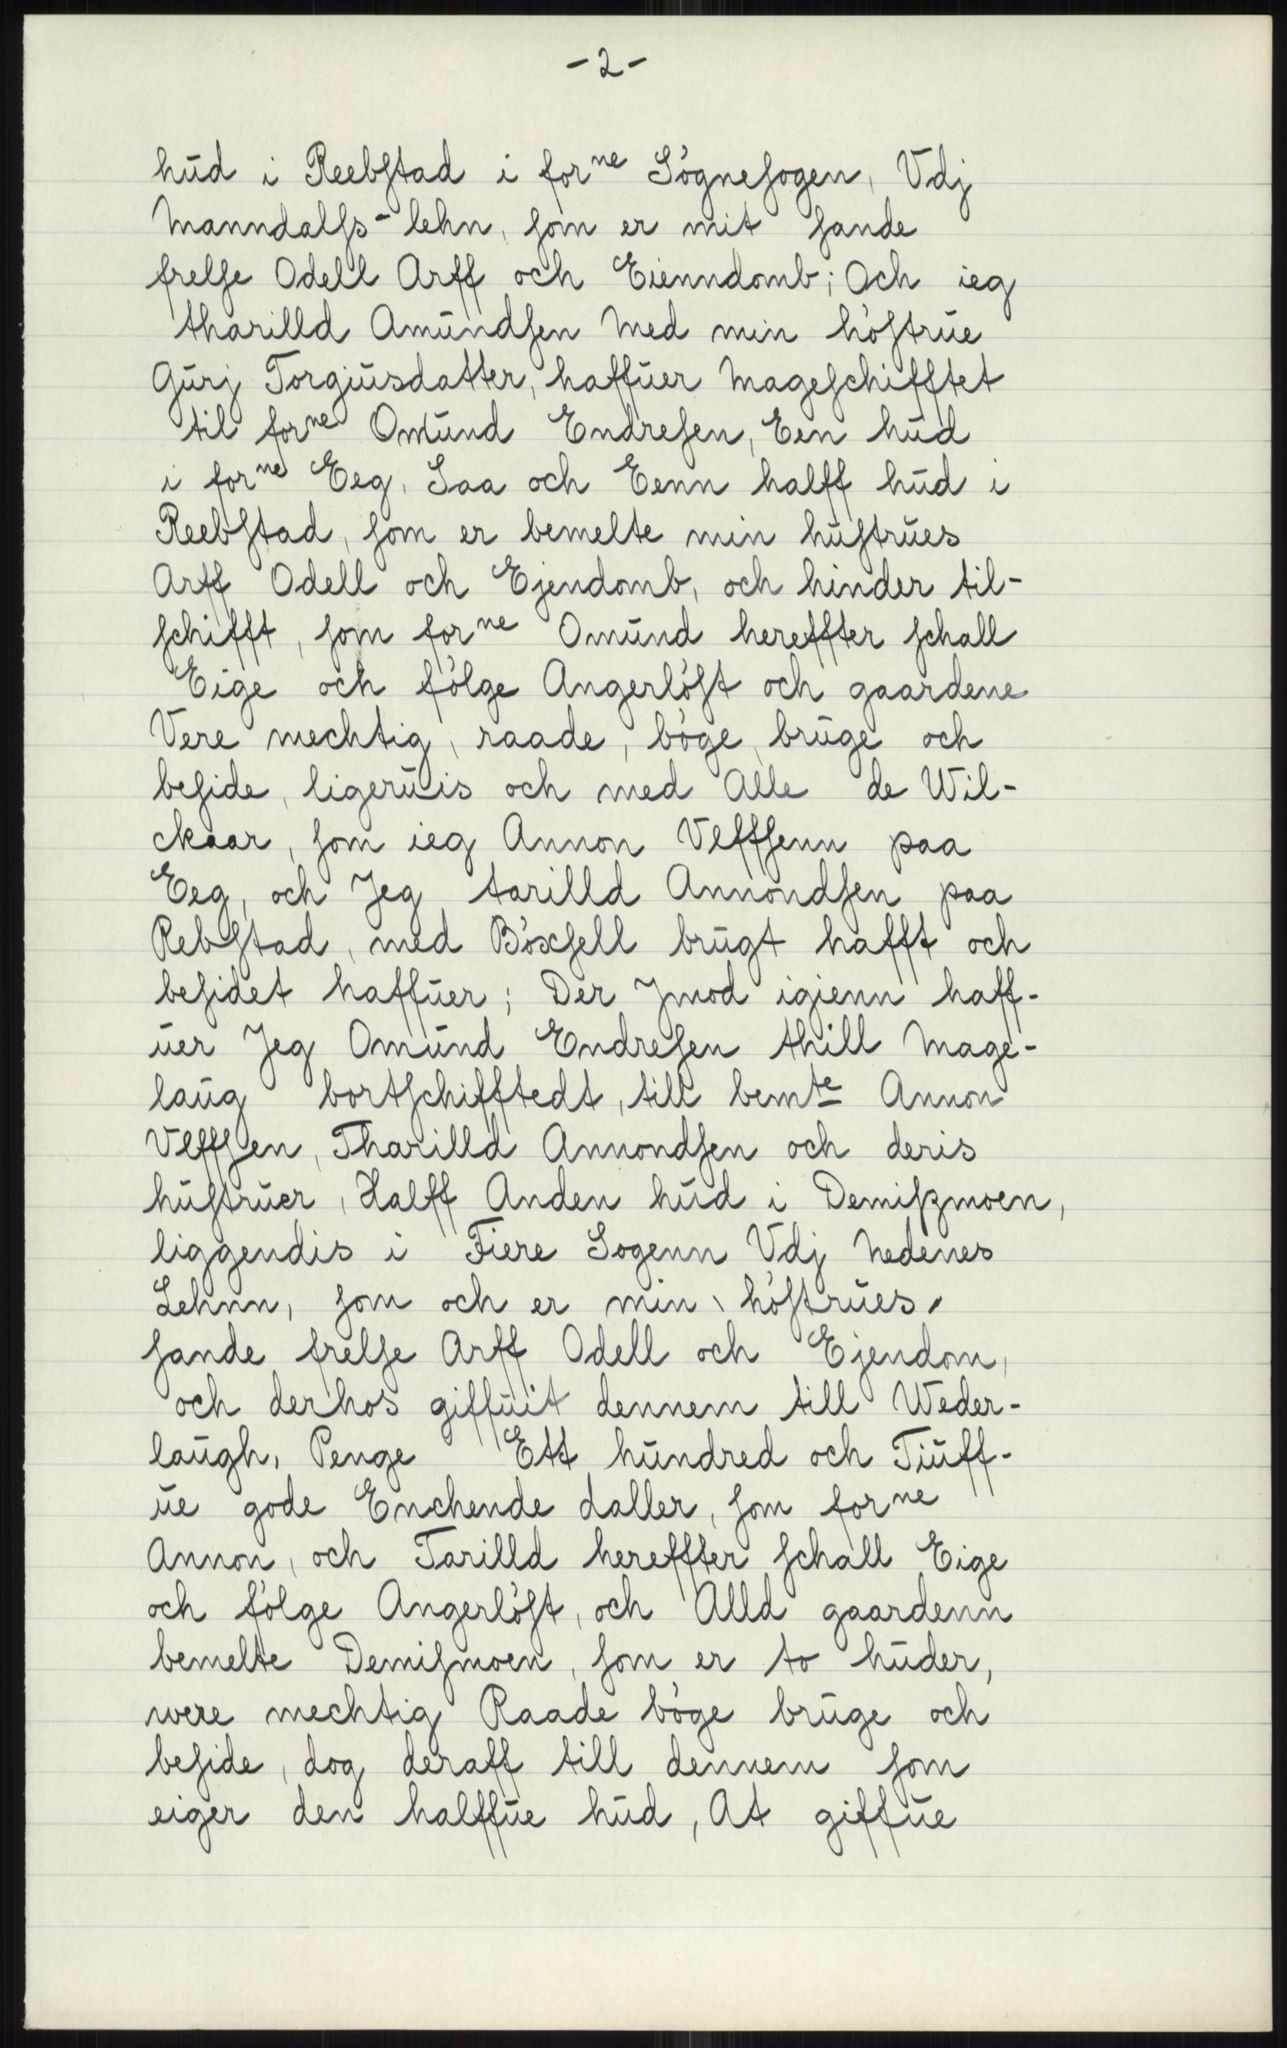 -2-
hud i Reebstad i forne Sögnesogen, Vdj
Manndalss-lehn, som er mit sande
frelse Odell Arff och Eienndomb; Och ieg
tharilld Amundsen Med min höstrue
Gurj Torgiusdatter, haffuer Mageschifftet
til forne Omund Endresen, Een hud
i forne Eeg, Saa och Eenn halff hud i
Reebstad, som er bemelte min hustrues
Arff Odell och Ejendomb, och hinder til-
schifft, som forne Omund hereffter schall
Eige och fölge Angerlöst och gaardene
Vere mechtig, raade, böge, bruge och
beside, ligeruis och med Alle de Wil-
ckaar, som ieg Annon Vlffsenn paa
Eeg, och Jeg tarilld Annondsen paa
Rebstad, med Böxsell brugt hafft och
besidet haffuer; Der Jmod igienn haff-
uer Jeg Omund Endresen thill Mage-
laug bortschifftedt, till bemte Annon
Vlffsen, Tharilld Annondsen och deris
hustruer, Halff Anden hud i Demiszmoen,
liggendis i Fiere Sogenn Vdj Nedenes
Lehnn, som och er min höstrues
sande frelse Arff Odell och Ejendom,
och derhos giffuit dennem till Weder-
laugh, Penge Ett hundred och Tiuff-
ue gode Enchende daller, som forne
Annon, och Tarilld hereffter schall Eige
och fölge Angerlöst, och Alld gaardenn
bemelte Demismoen, som er to huder,
were mechtig Raade böge bruge och
beside, dog deraff till dennem som
eiger den halffue hud, At giffue